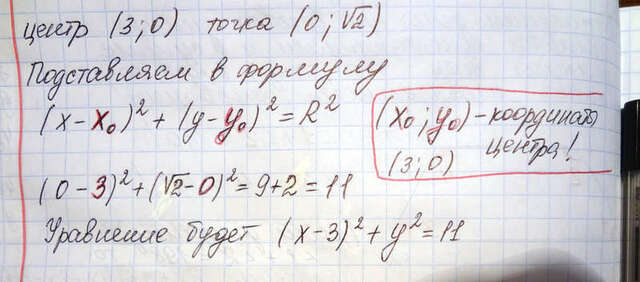 центр (3; 0) точка (0; √2)
Подставляем в формулу
(x - x₀)² + (y - y₀)² = R²
(x₀; y₀) - координаты
центра!
(3; 0)
(0 - 3)² + (√2 - 0)² = 9 + 2 = 11
Уравнение будет (x - 3)² + y² = 11